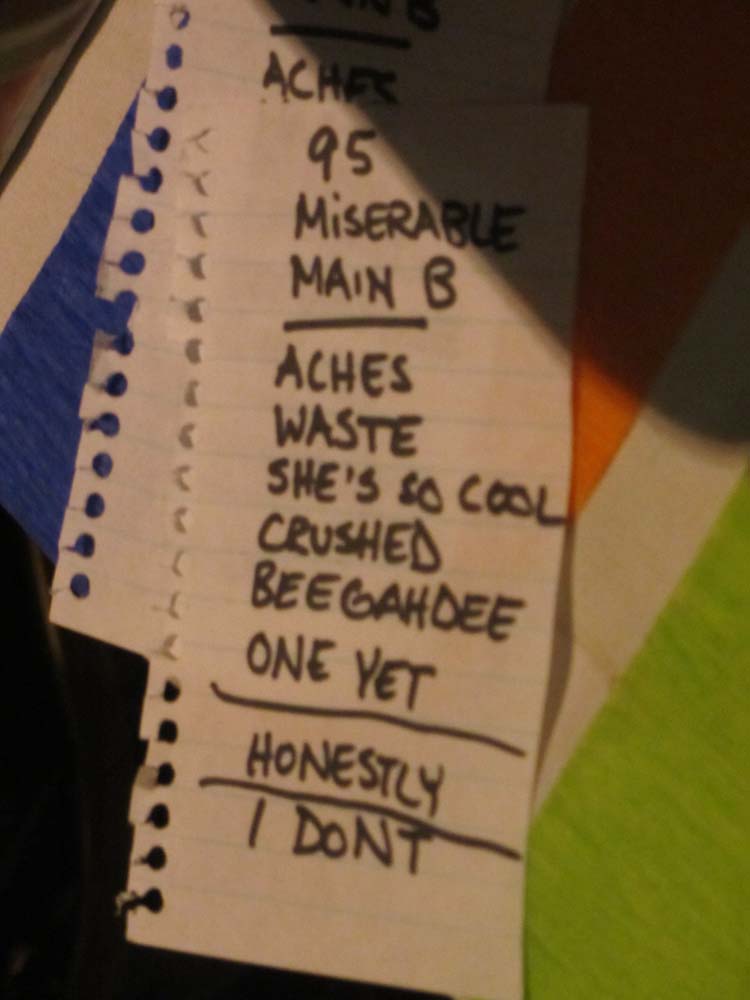 B
ACHES
95
MiSERABLE
MAIN B
ACHES
WASTE
SHE'S SO COOL
CRUSHED
BEEGAHDEE
ONE YET
HONESTLY
I DONT